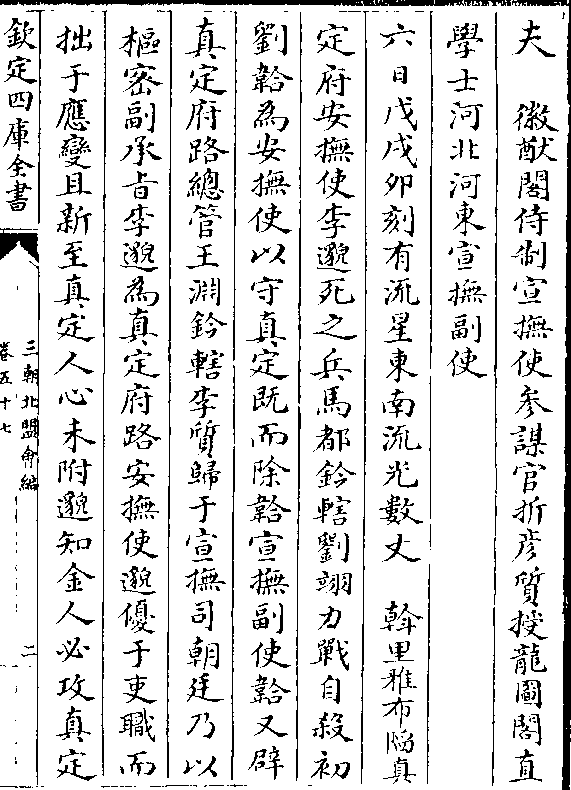 夫　徽猷閣侍制宣撫使參謀官折彦質授龍圖閣直
學士河北河東宣撫副使
六日戊戌卯刻有流星東南流光數丈　斡里雅布陷真
定府安撫使李邈死之兵馬都鈐轄劉翊力戰自殺初
劉韐為安撫使以守真定既而除韐宣撫副使韐又辟
真定府路總管王淵鈐轄李質歸于宣撫司朝廷乃以
樞密副承旨李邈為真定府路安撫使邈優于吏職而
拙于應變且新至真定人心未附邈知金人必攻真定
欽定四庫全書
三朝北盟會編
卷五十七
二